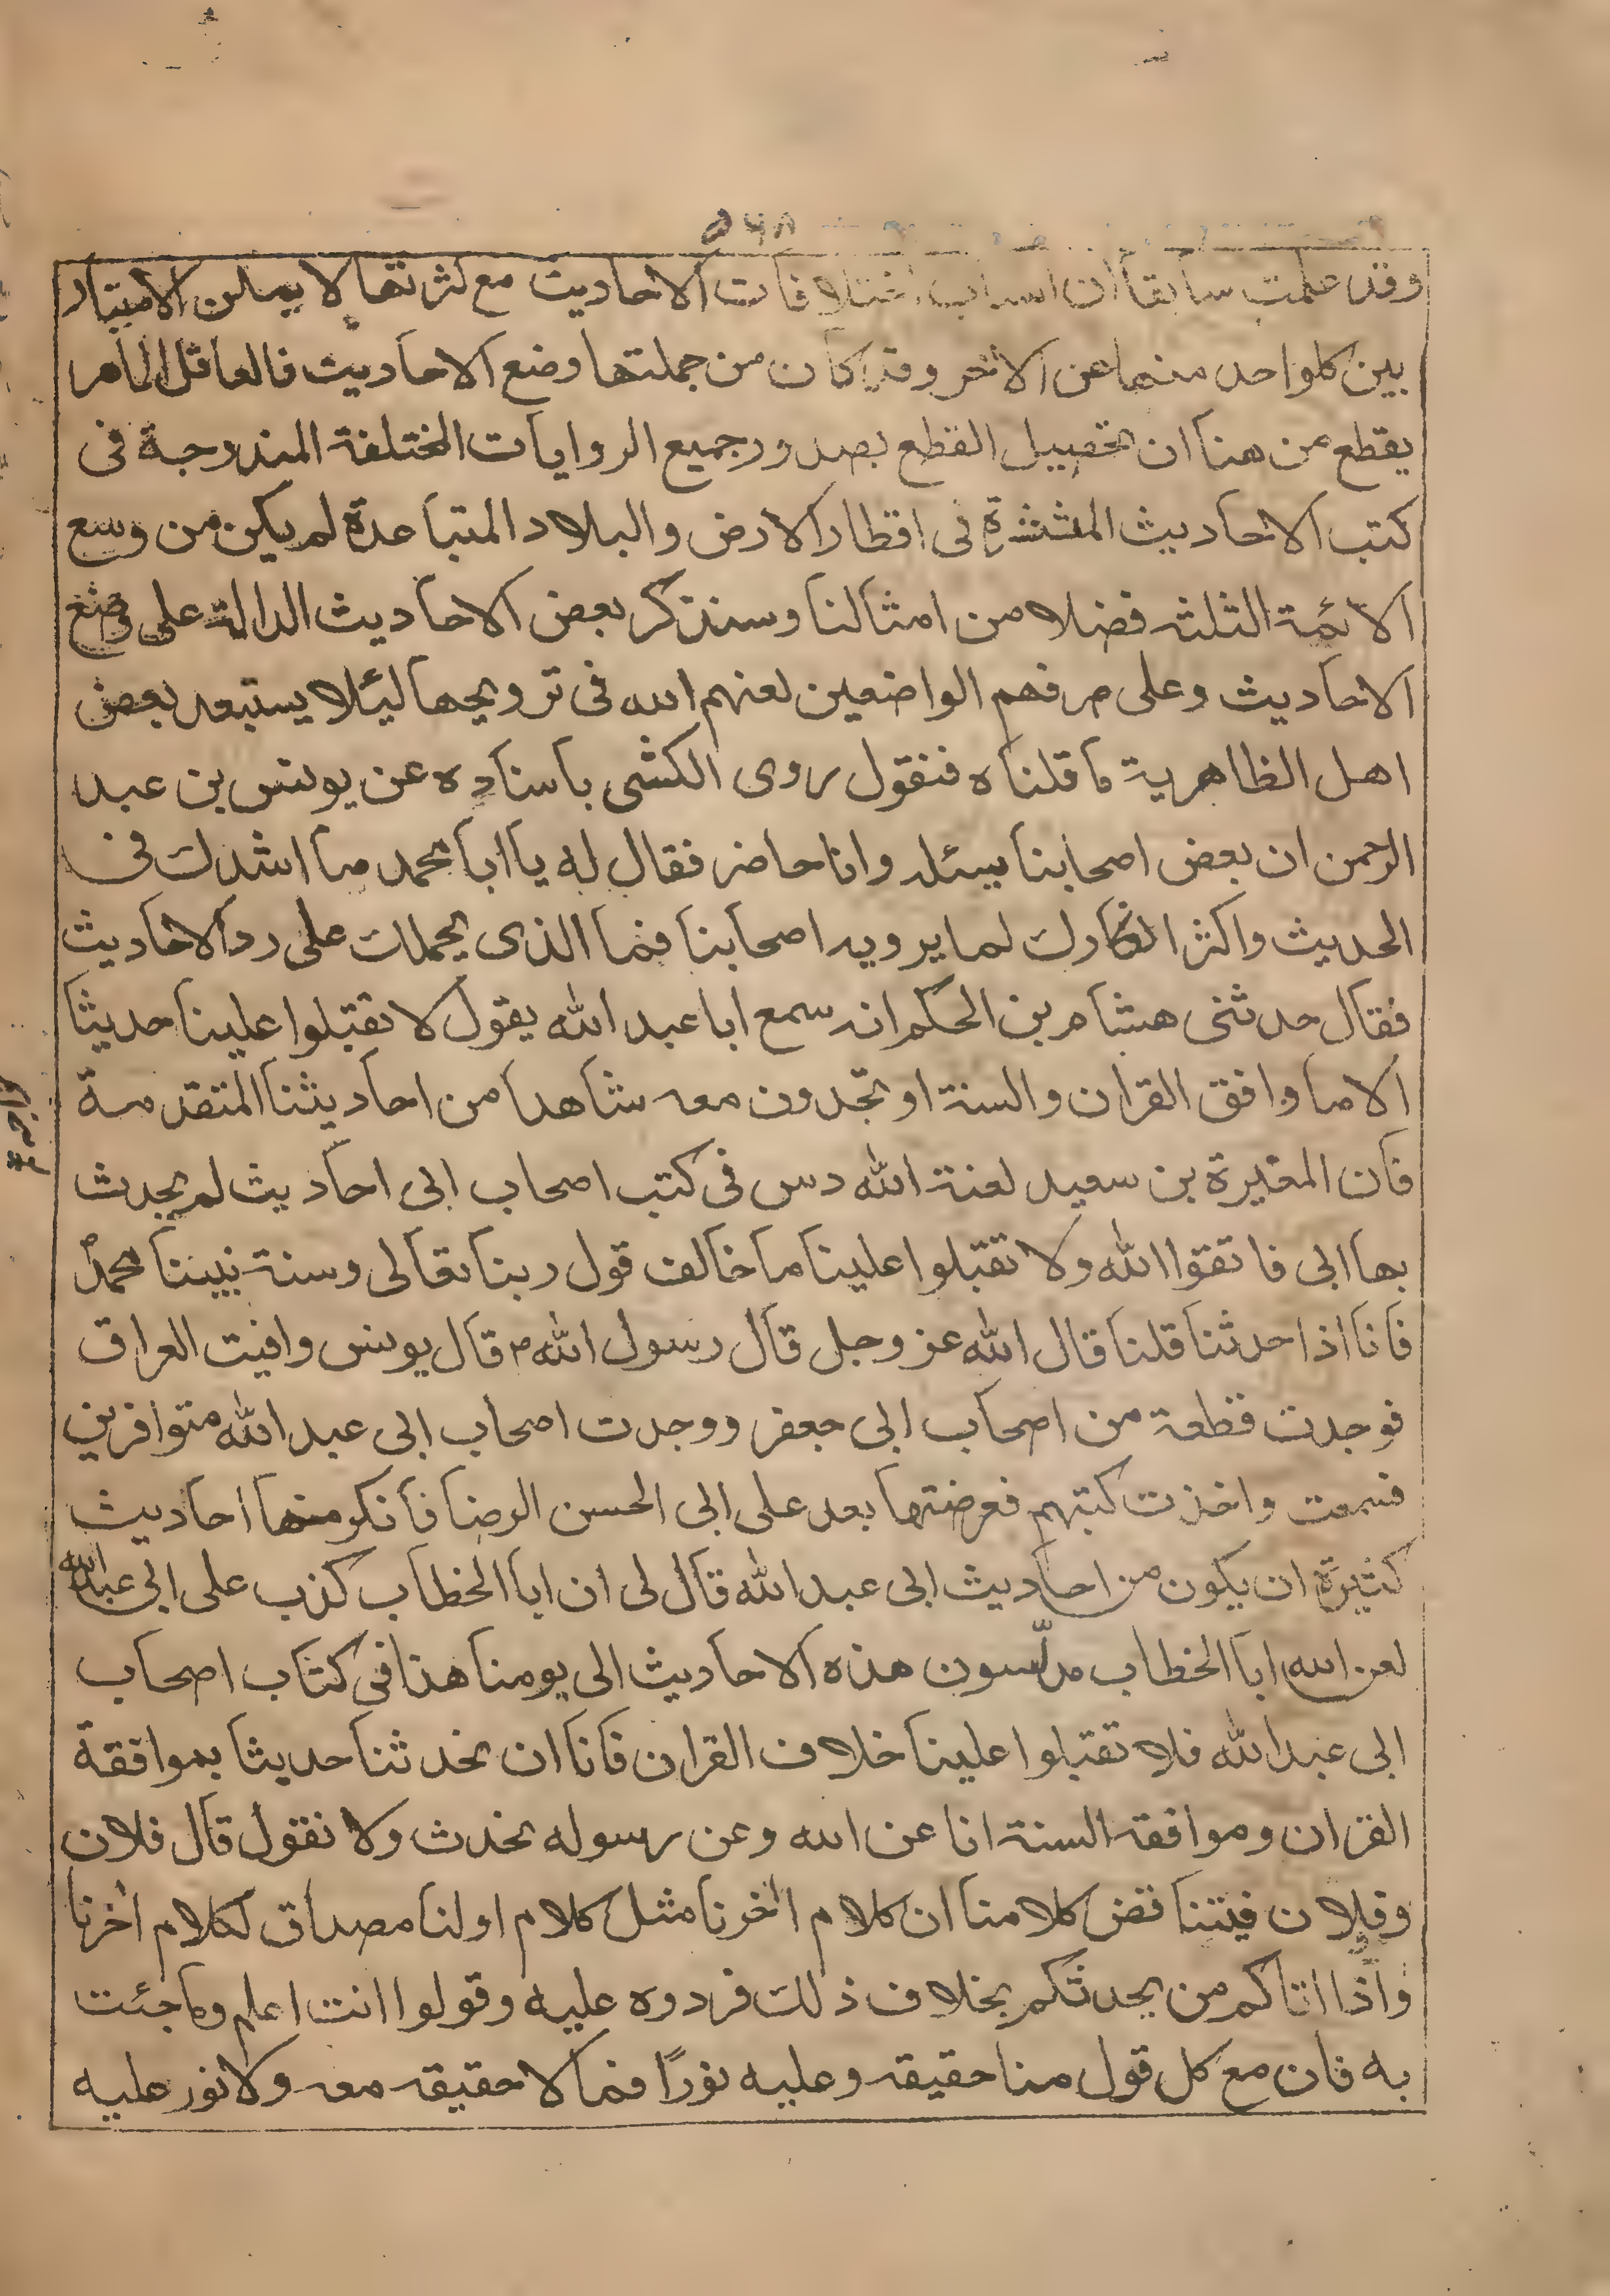 ٥٦٨
وقد علمت سابقا ان اسباب اختلافات الاحاديث مع كثرتها لا يمكن الامتياز
بين كلواحد منها عن الاخر وقد كان من جملتها وضع الاحاديث فالعاقل الماهر
يقطع من هنا ان تحصيل القطع بصدور جميع الروايات المختلفة المندرجة فى
كتب الاحاديث المنتشرة فى اقطار الارض والبلاد المتباعدة لم يكن من وسع
الائمة الثلثه فضلا من امثالنا وسنذكر بعض الاحاديث الدالة على وضع
الاحاديث وعلى صرفهم الواضعين لعنهم الله فى ترويجها ليئلا يستبعد بعض
اهل الظاهرية ما قلناه فنقول روى الكشى باسناده عن يونس بن عبد
الرحمن ان بعض اصحابنا يسئله وانا حاضر فقال له يا ابا محمد ما اشدك فى
الحديث واكثر انكارك لما يرويه اصحابنا فما الذى يحملك على رد الاحاديث
فقال حدثنى هشام بن الحكم انه سمع ابا عبد الله يقول لا تقبلوا علينا حديثا
الا ما وافق القران والسنة او تجدون معه شاهدا من احاديثنا المتقدمة
فان المغيرة بن سعيد لعنة الله دس فى كتب اصحاب ابى احاديث لم يحدث
بها ابى فاتقوا الله ولا تقبلوا علينا ما خالف قول ربنا تعالى وسنة نبيننا محمد
فانا اذا حدثنا قلنا قال الله عز وجل قال رسول الله ص قال يونس وافيت العراق
فوجدت قطعة من اصحاب ابى جعفر ووجدت اصحاب ابى عبد الله متوافرين
فسمعت واخذت كتبهم فعرضتها بعد على ابى الحسن الرضا فانكر منها احاديث
كثيرة ان يكون من احاديث ابى عبد الله قال لى ان ابا الخطاب كذب على ابى عبد الله
لعن الله ابا الخطاب مدلّسون هذه الاحاديث الى يومنا هذا فى كتاب اصحاب
ابى عبد الله فلا تقبلوا علينا خلاف القران فانا ان تحدثنا حديثا بموافقة
القران وموافقة السنة انا عن الله وعن رسوله نحدث ولا نقول قال فلان
وفلان فيتناقض كلامنا ان كلام اخرنا مثل كلام اولنا مصداق لكلام اخرنا
واذا اتاكم من يحدثكم بخلاف ذلك فردوه عليه وقولوا انت اعلم وما جئت
به فان مع كل قول منا حقيقة وعليه نورًا فما لا حقيقه معه ولا نور عليه